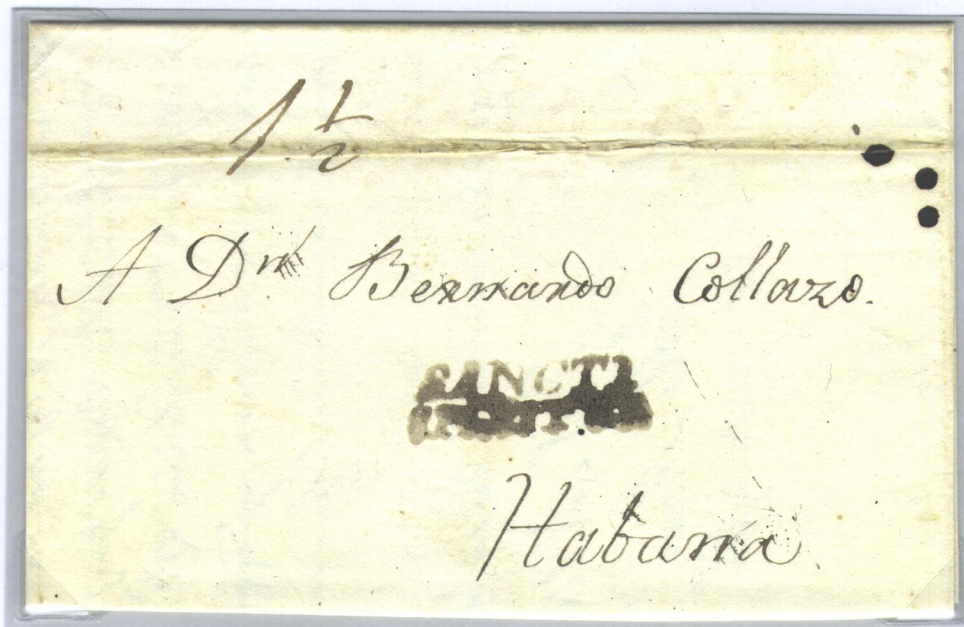 1 1/2
A Dn Bernardo Collazo.
SANCTI
Habana